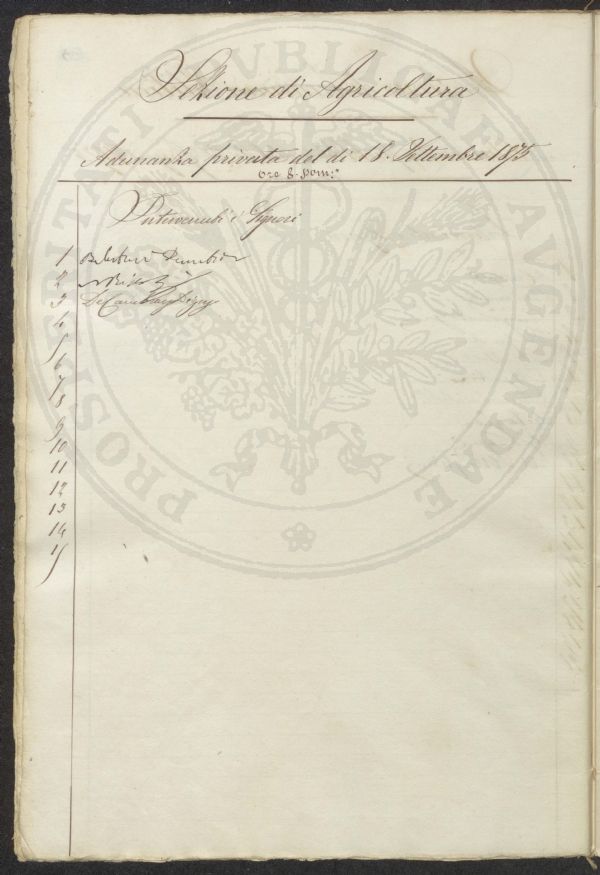 Sezione di Agricoltura
Adunanza privata del dì 18. Settembre 1875
ore 8. pom:e
Intervenuti i Signori
1
2
3 De Cambray Digny
4
5
6
7
8
9
10
11
12
13
14
15
PROSPERITATI PVBLICAE AVGENDAE